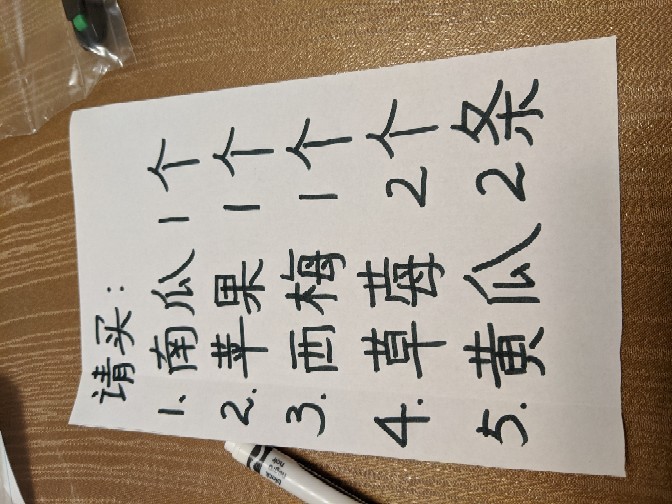 请买:
1. 南瓜 1个
2. 苹果 1个
3. 西梅 1个
4. 草莓 2个
5. 黄瓜 2条